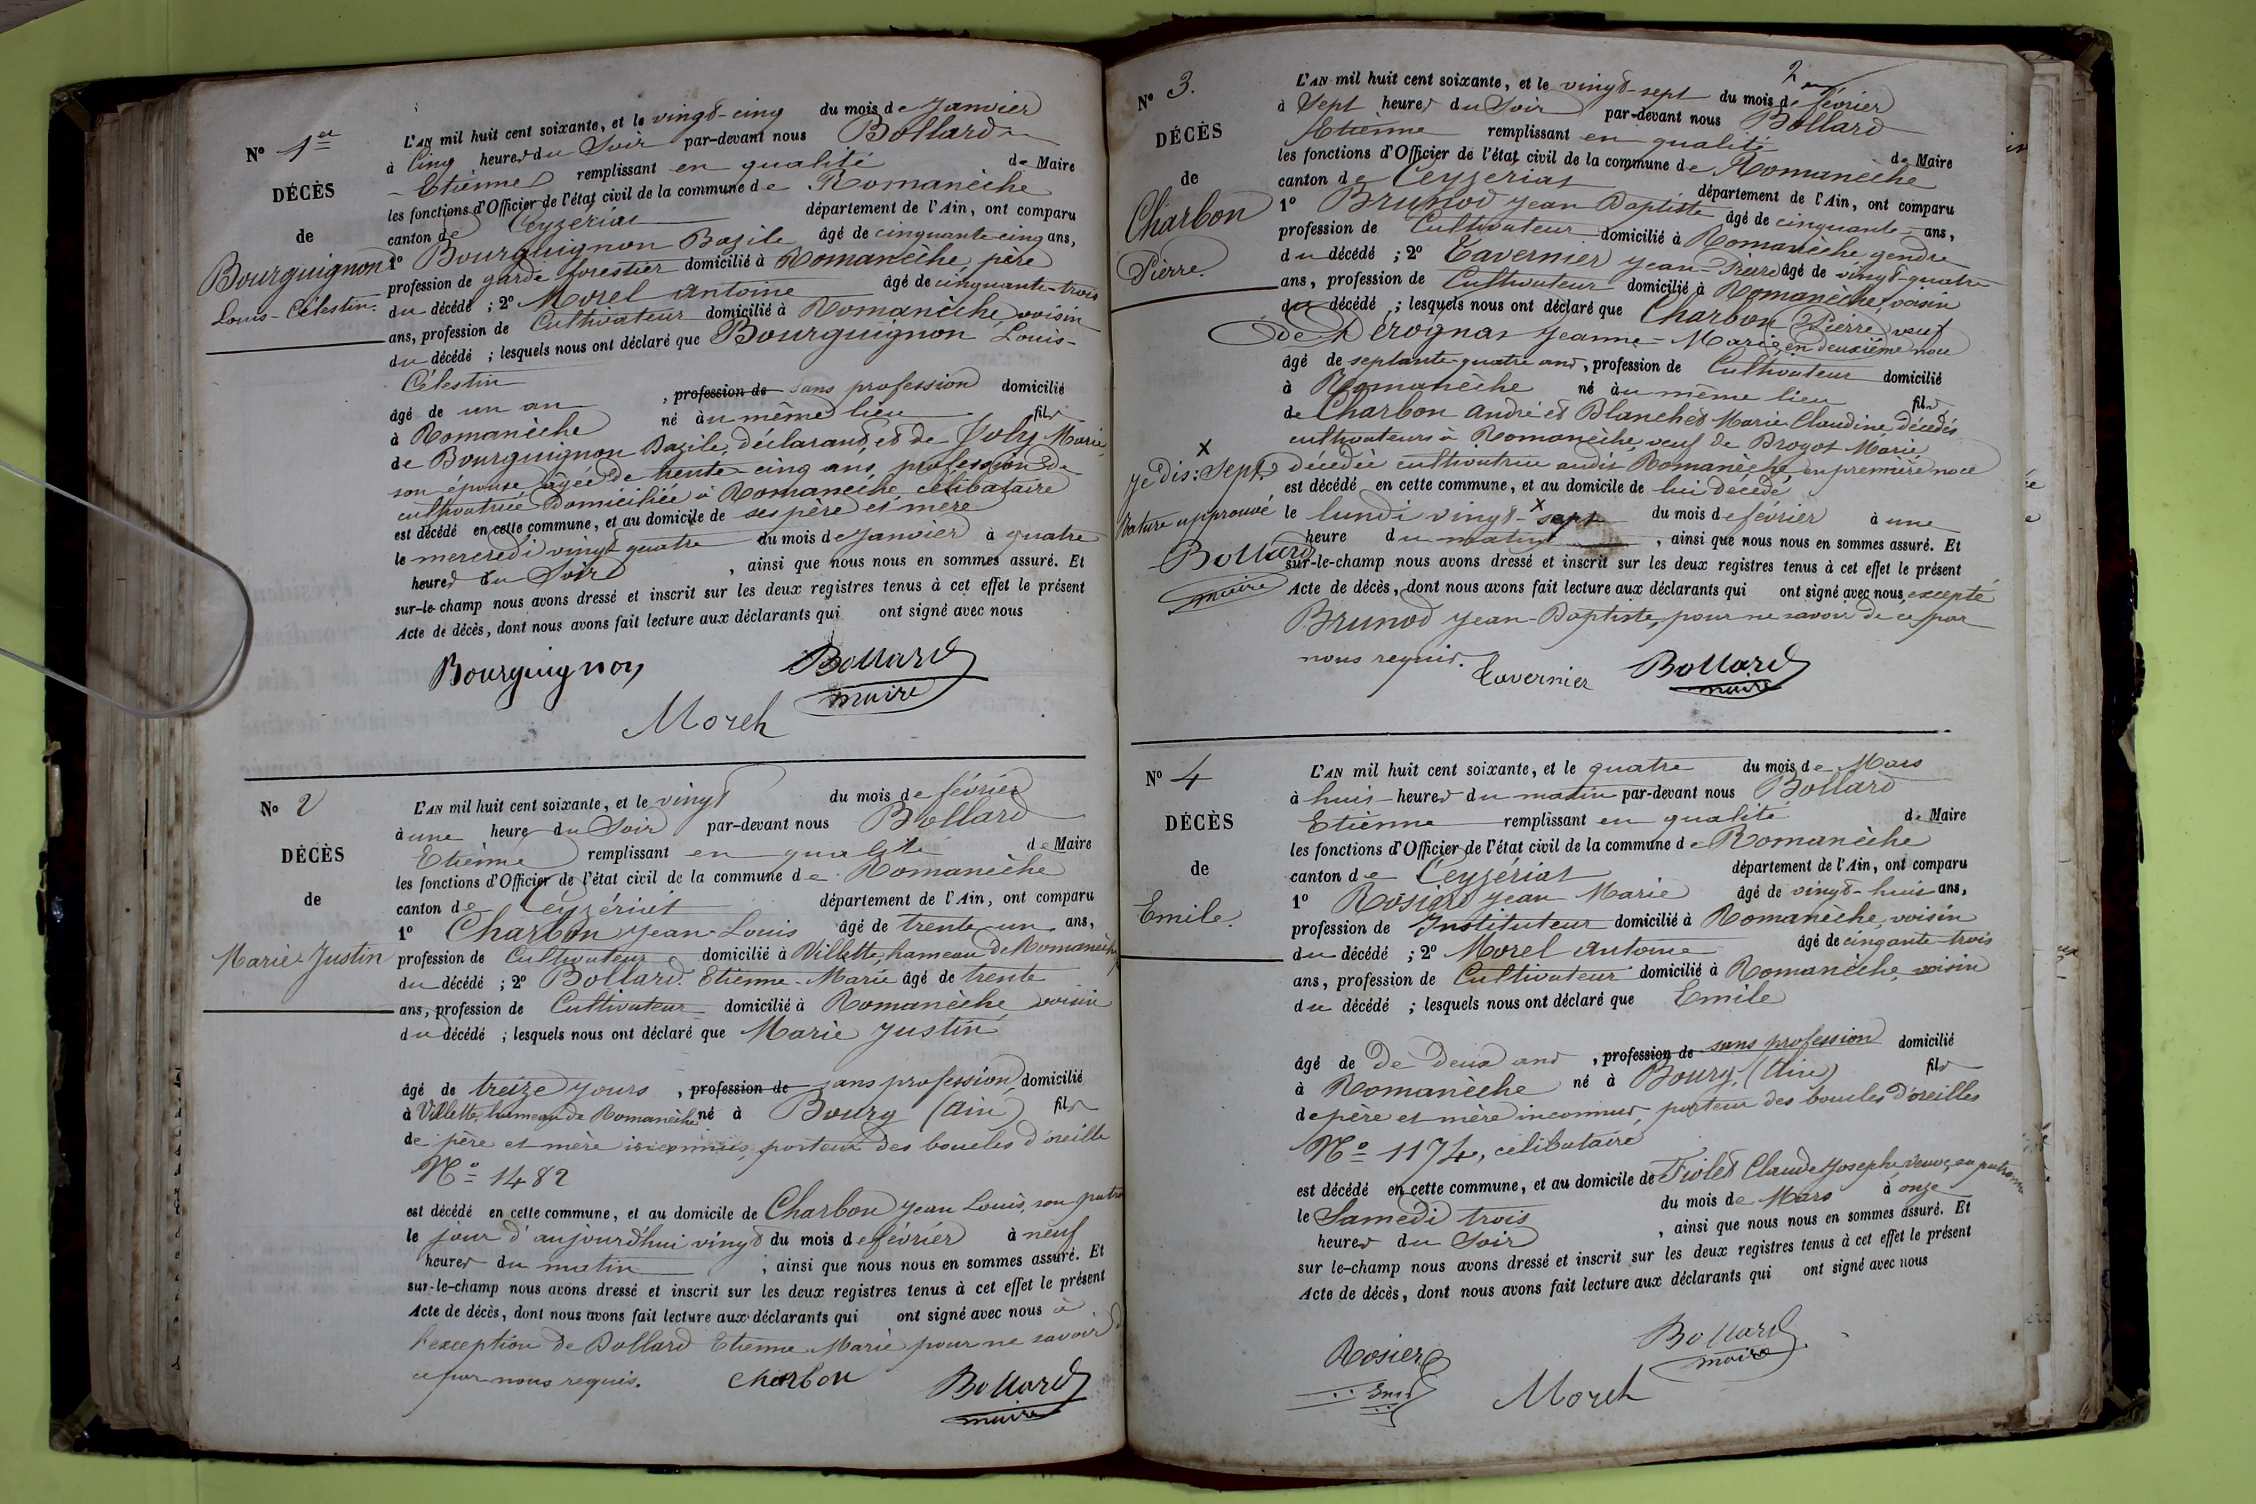 N° 1er
DÉCÈS
de
Bourguignon
Louis-Célestin.
L'AN mil huit cent soixante, et le vingt-cinq du mois de Janvier
à Cinq heures du Soir par-devant nous Bollard
Etienne remplissant en qualité de Maire
les fonctions d'Officier de l'état civil de la commune de Romanèche
canton de Ceyzériat département de l'Ain, ont comparu
1° Bourguignon Bazile âgé de cinquante-cinq ans,
profession de garde forestier domicilié à Romanèche père
du décédé ; 2° Morel Antoine âgé de cinquante-trois
ans, profession de Cultivateur domicilié à Romanèche, voisin
du décédé ; lesquels nous ont déclaré que Bourguignon Louis-
Célestin
âgé de un an , profession de sans profession domicilié
à Romanèche né au même lieu fils
de Bourguignon Bazile, déclarant, et de Joly Marie,
son épouse, âgée de trente-cinq ans, profession de
cultivatrice Domiciliée à Romanèche, célibataire
est décédé en cette commune, et au domicile de ses père et mère
le mercredi vingt quatre du mois de Janvier à quatre
heures du Soir , ainsi que nous nous en sommes assuré. Et
sur-le-champ nous avons dressé et inscrit sur les deux registres tenus à cet effet le présent
Acte de décès, dont nous avons fait lecture aux déclarants qui ont signé avec nous
Bourguignon Bollard
maire
Morel
N° 2
DÉCÈS
de
Marie Justin
L'AN mil huit cent soixante, et le vingt du mois de février
à une heure du Soir par-devant nous Bollard
Etienne remplissant en qualité de Maire
les fonctions d'Officier de l'état civil de la commune de Romanèche
canton de Ceyzériat département de l'Ain, ont comparu
1° Charbon Jean-Louis âgé de trente-un ans,
profession de Cultivateur domicilié à Villette, hameau de Romanèche
du décédé ; 2° Bollard Etienne-Marie âgé de trente
ans, profession de Cultivateur domicilié à Romanèche voisin
du décédé ; lesquels nous ont déclaré que Marie Justin
âgé de treize jours , profession de sans profession, domicilié
à Villette, hameau de Romanèche né à Bourg (Ain) fils
de père et mère inconnus, porteur des boucles d'oreille
N° 1482
est décédé en cette commune, et au domicile de Charbon Jean Louis, son
le jour d'aujourd'hui vingt du mois de février à neuf
heures du matin , ainsi que nous nous en sommes assuré. Et
sur-le-champ nous avons dressé et inscrit sur les deux registres tenus à cet effet le présent
Acte de décès, dont nous avons fait lecture aux déclarants qui ont signé avec nous à
l'exception de Bollard Etienne Marie pour ne savoir
ce par nous requis. Charbon Bollard
maire
2
N° 3.
DÉCÈS
de
Charbon
Pierre.
L'AN mil huit cent soixante, et le vingt-sept du mois de février
à Sept heures du Soir par-devant nous Bollard
Etienne remplissant en qualité de Maire
les fonctions d'Officier de l'état civil de la commune de Romanèche
canton de Ceyzériat département de l'Ain, ont comparu
1° Brunod Jean Baptiste âgé de cinquante ans,
profession de Cultivateur domicilié à Romanèche gendre
du décédé ; 2° Tavernier Jean-Pierre âgé de vingt-quatre
ans, profession de Cultivateur domicilié à Romanèche, voisin
du décédé ; lesquels nous ont déclaré que Charbon Pierre, veuf
de Derognat Jeanne-Marie, en deuxième noce
âgé de septante-quatre ans, profession de Cultivateur domicilié
à Romanèche né au même lieu fils
de Charbon André et Blanchet Marie Claudine décédés
cultivateurs à Romanèche, veuf de Broyot Marie,
décédée cultivatrice audit Romanèche en première noce
est décédé en cette commune, et au domicile de lui décédé
le lundi vingt-sept du mois de février à une
heure du matin , ainsi que nous nous en sommes assuré. Et
sur-le-champ nous avons dressé et inscrit sur les deux registres tenus à cet effet le présent
Acte de décès, dont nous avons fait lecture aux déclarants qui ont signé avec nous, excepté
Brunod Jean-Baptiste, pour ne savoir de ce par
nous requis. Tavernier Bollard
maire
X
je dis: Sept.
Rature approuvé
Bollard
maire
N° 4
DÉCÈS
de
Emile.
L'AN mil huit cent soixante, et le quatre du mois de Mars
à huit heures du matin par-devant nous Bollard
Etienne remplissant en qualité de Maire
les fonctions d'Officier de l'état civil de la commune de Romanèche
canton de Ceyzériat département de l'Ain, ont comparu
1° Rosier Jean Marie âgé de vingt-huit ans,
profession de Instituteur domicilié à Romanèche, voisin
du décédé ; 2° Morel Antoine âgé de cinqante-trois
ans, profession de Cultivateur domicilié à Romanèche, voisin
du décédé ; lesquels nous ont déclaré que Emile
âgé de De Deux ans , profession de sans profession domicilié
à Romanèche né à Bourg, (Ain) fils
de père et mère inconnus, porteur des boucles d'oreilles
N° 1174, célibataire,
est décédé en cette commune, et au domicile de Fiolet Claude Joseph
le Samedi trois du mois de Mars à onze
heures du Soir , ainsi que nous nous en sommes assuré. Et
sur le-champ nous avons dressé et inscrit sur les deux registres tenus à cet effet le présent
Acte de décès, dont nous avons fait lecture aux déclarants qui ont signé avec nous
Rosier Bollard
maire
Morel